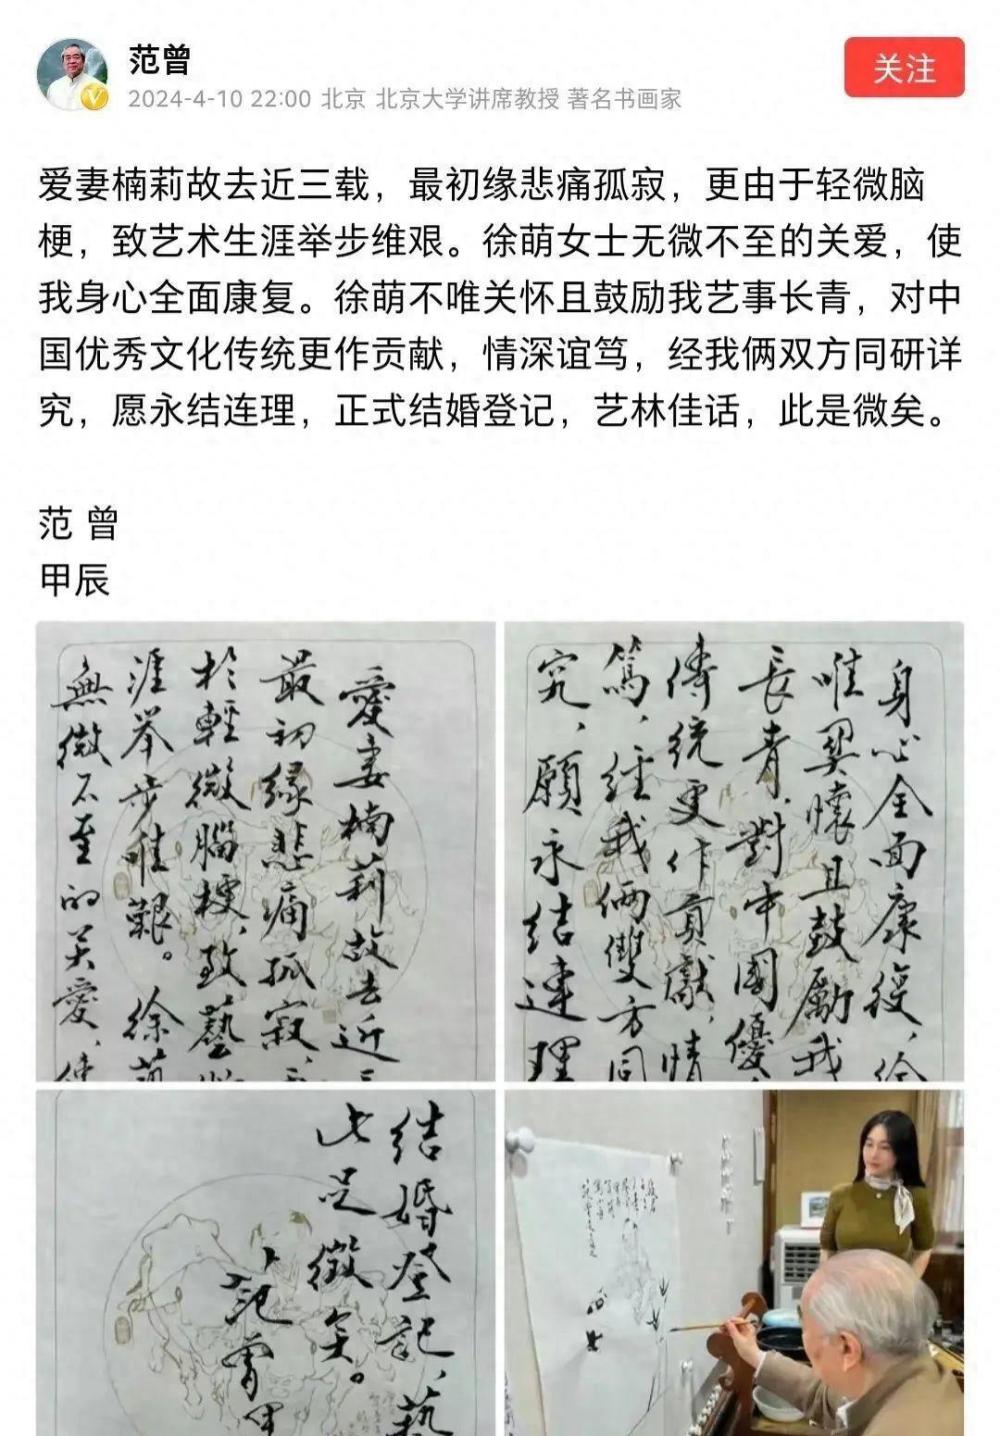 范曾
关注
2024-4-10 22:00 北京 北京大学讲席教授 著名书画家
爱妻楠莉故去近三载，最初缘悲痛孤寂，更由于轻微脑
梗，致艺术生涯举步维艰。徐萌女士无微不至的关爱，使
我身心全面康复。徐萌不唯关怀且鼓励我艺事长青，对中
国优秀文化传统更作贡献，情深谊笃，经我俩双方同研详
究，愿永结连理，正式结婚登记，艺林佳话，此是微矣。
范 曾
甲辰
愛妻楠莉故去近三
最初緣悲痛孤寂，
於輕微腦梗，致藝
涯举步唯艱。徐萌
無微不至的关愛，使
身心全面康復，徐
唯関懷且鼓勵我
長青，對中國優
傳统更作貢獻，情
篤，経我俩雙方同
究，願永结連理
结婚登記，藝
此是微矣。
范曾甲